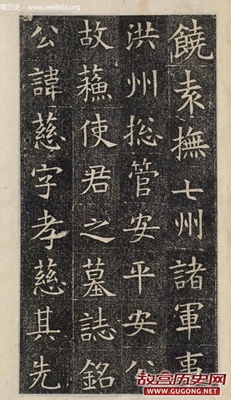 饒袁撫七州諸軍事
洪州捴管安平安公
故蘓使君之墓誌銘
公諱慈字孝慈其先
故宫历史网
www.GUGONG.net